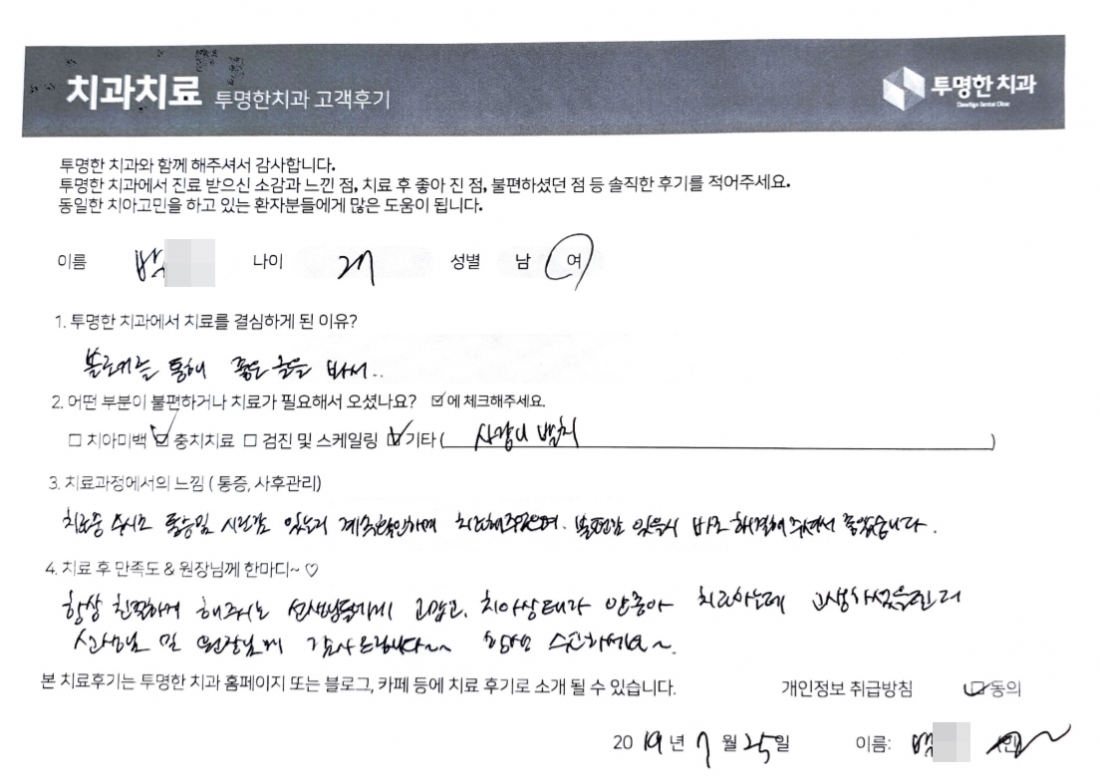 치과치료 투명한치과 고객후기
투명한 치과
투명한 치과와 함께 해주셔서 감사합니다.
투명한 치과에서 진료 받으신 소감과 느낀 점, 치료 후 좋아 진 점, 불편하셨던 점 등 솔직한 후기를 적어주세요.
동일한 치아고민을 하고 있는 환자분들에게 많은 도움이 됩니다.
이름 나이 성별 남 여
1. 투명한 치과에서 치료를 결심하게 된 이유?
통해 좋은 글을 봐서..
2. 어떤 부분이 불편하거나 치료가 필요해서 오셨나요? ☑에 체크해주세요.
☐ 치아미백 ☑ 충치치료 ☐ 검진 및 스케일링 ☑ 기타 ( 사랑니 발치 )
3. 치료과정에서의 느낌 ( 통증, 사후관리)
치료중 수시로 통증및 시린감 있는지 계속확인하며 치료해주셨으며. 불편감 있을시 바로 해결해주셔서 좋았습니다.
4. 치료 후 만족도 & 원장님께 한마디~ ♡
항상 친절하게 해주시는 선생님들에게 고맙고, 치아상태가 안좋아 치료하는데 고생하셨을텐데
선생님 및 원장님께 감사드립니다~~ 항상 수고하세요~.
본 치료후기는 투명한 치과 홈페이지 또는 블로그, 카페 등에 치료 후기로 소개 될 수 있습니다. 개인정보 취급방침 ☑동의
2019년 7월 25일 이름: (인)